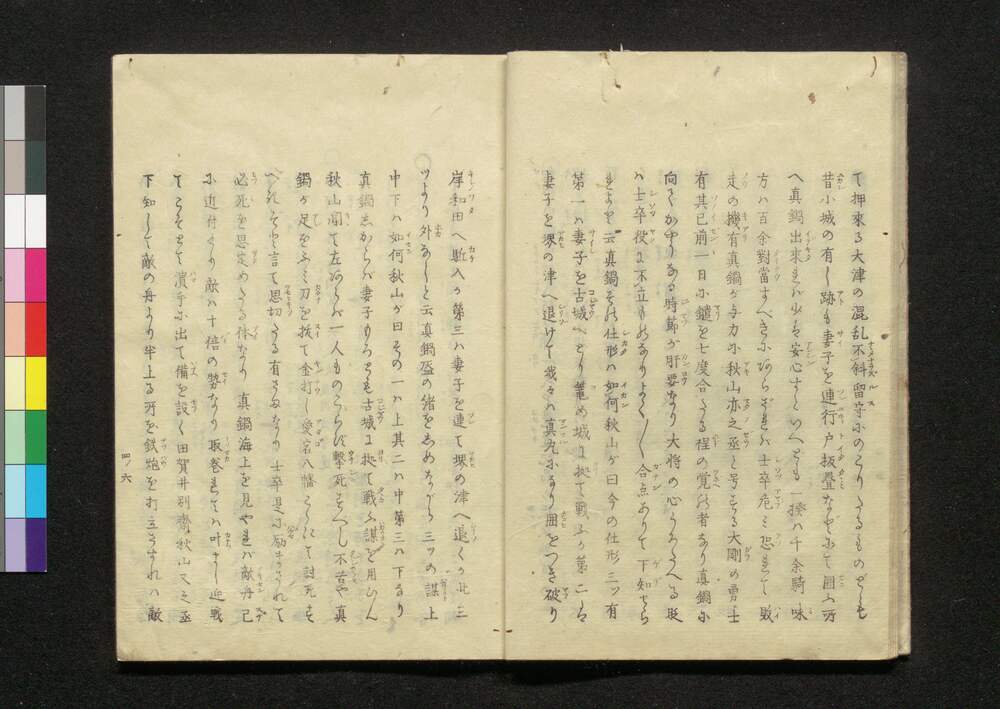 て押来る大津の混乱不斜留守にのこりたるものども
昔小城の有し跡も妻子を連行戸板畳なとにて囲ふ所
へ真鍋出来れハ少も安心すといへとも一揆ハ千余騎味
方ハ百余對當すへきにあらされハ士卒危ミ恐れて敗
走の機有真鍋が与力に秋山亦之丞と号する大剛の勇士
有其已前一日に鑓を七度合たる程の覚の者なり真鍋に
向てか申なる時節が肝要なり大将の心うろたへる
ハ士卒役に不立ものなりよく〳〵合点ありて下知せら
れよと云真鍋その仕形ハ如何秋山が曰今の仕形三ツ有
第一ハ妻子を古城へとり籠め城に拠て戦ふが第二ハ
妻子を堺の津へ退けて我々ハ真丸になり囲をつき破り
岸和田へ駈入が第三ハ妻子を連て堺の津へ退くが此三
ツより外なしと云真鍋盔の緒をしめながら三ツの謀上
中下ハ如何秋山が曰その一ハ上其二ハ中第三ハ下なり
真鍋しからハ妻子もろとも古城に拠て戦ふ謀を用ひん
秋山聞て左あらバ一人ものこらず撃死すべし不苦や真
鍋が足をふミ刀を抜て金打し愛宕八幡こゝにて討死す
べきぞと言て思切たる有さまなり士卒是に励まされて
必死を思定めたる体なり真鍋海上を見やれバ敵舟已
に近付より敵ハ十倍の勢なり取巻れてハ叶まし迎戦
てこそとて濱手に出て備を設く田賀井別齋秋山又之丞
下知して敵の舟より半上る所を鉄炮を打立けれハ敵
四ノ六